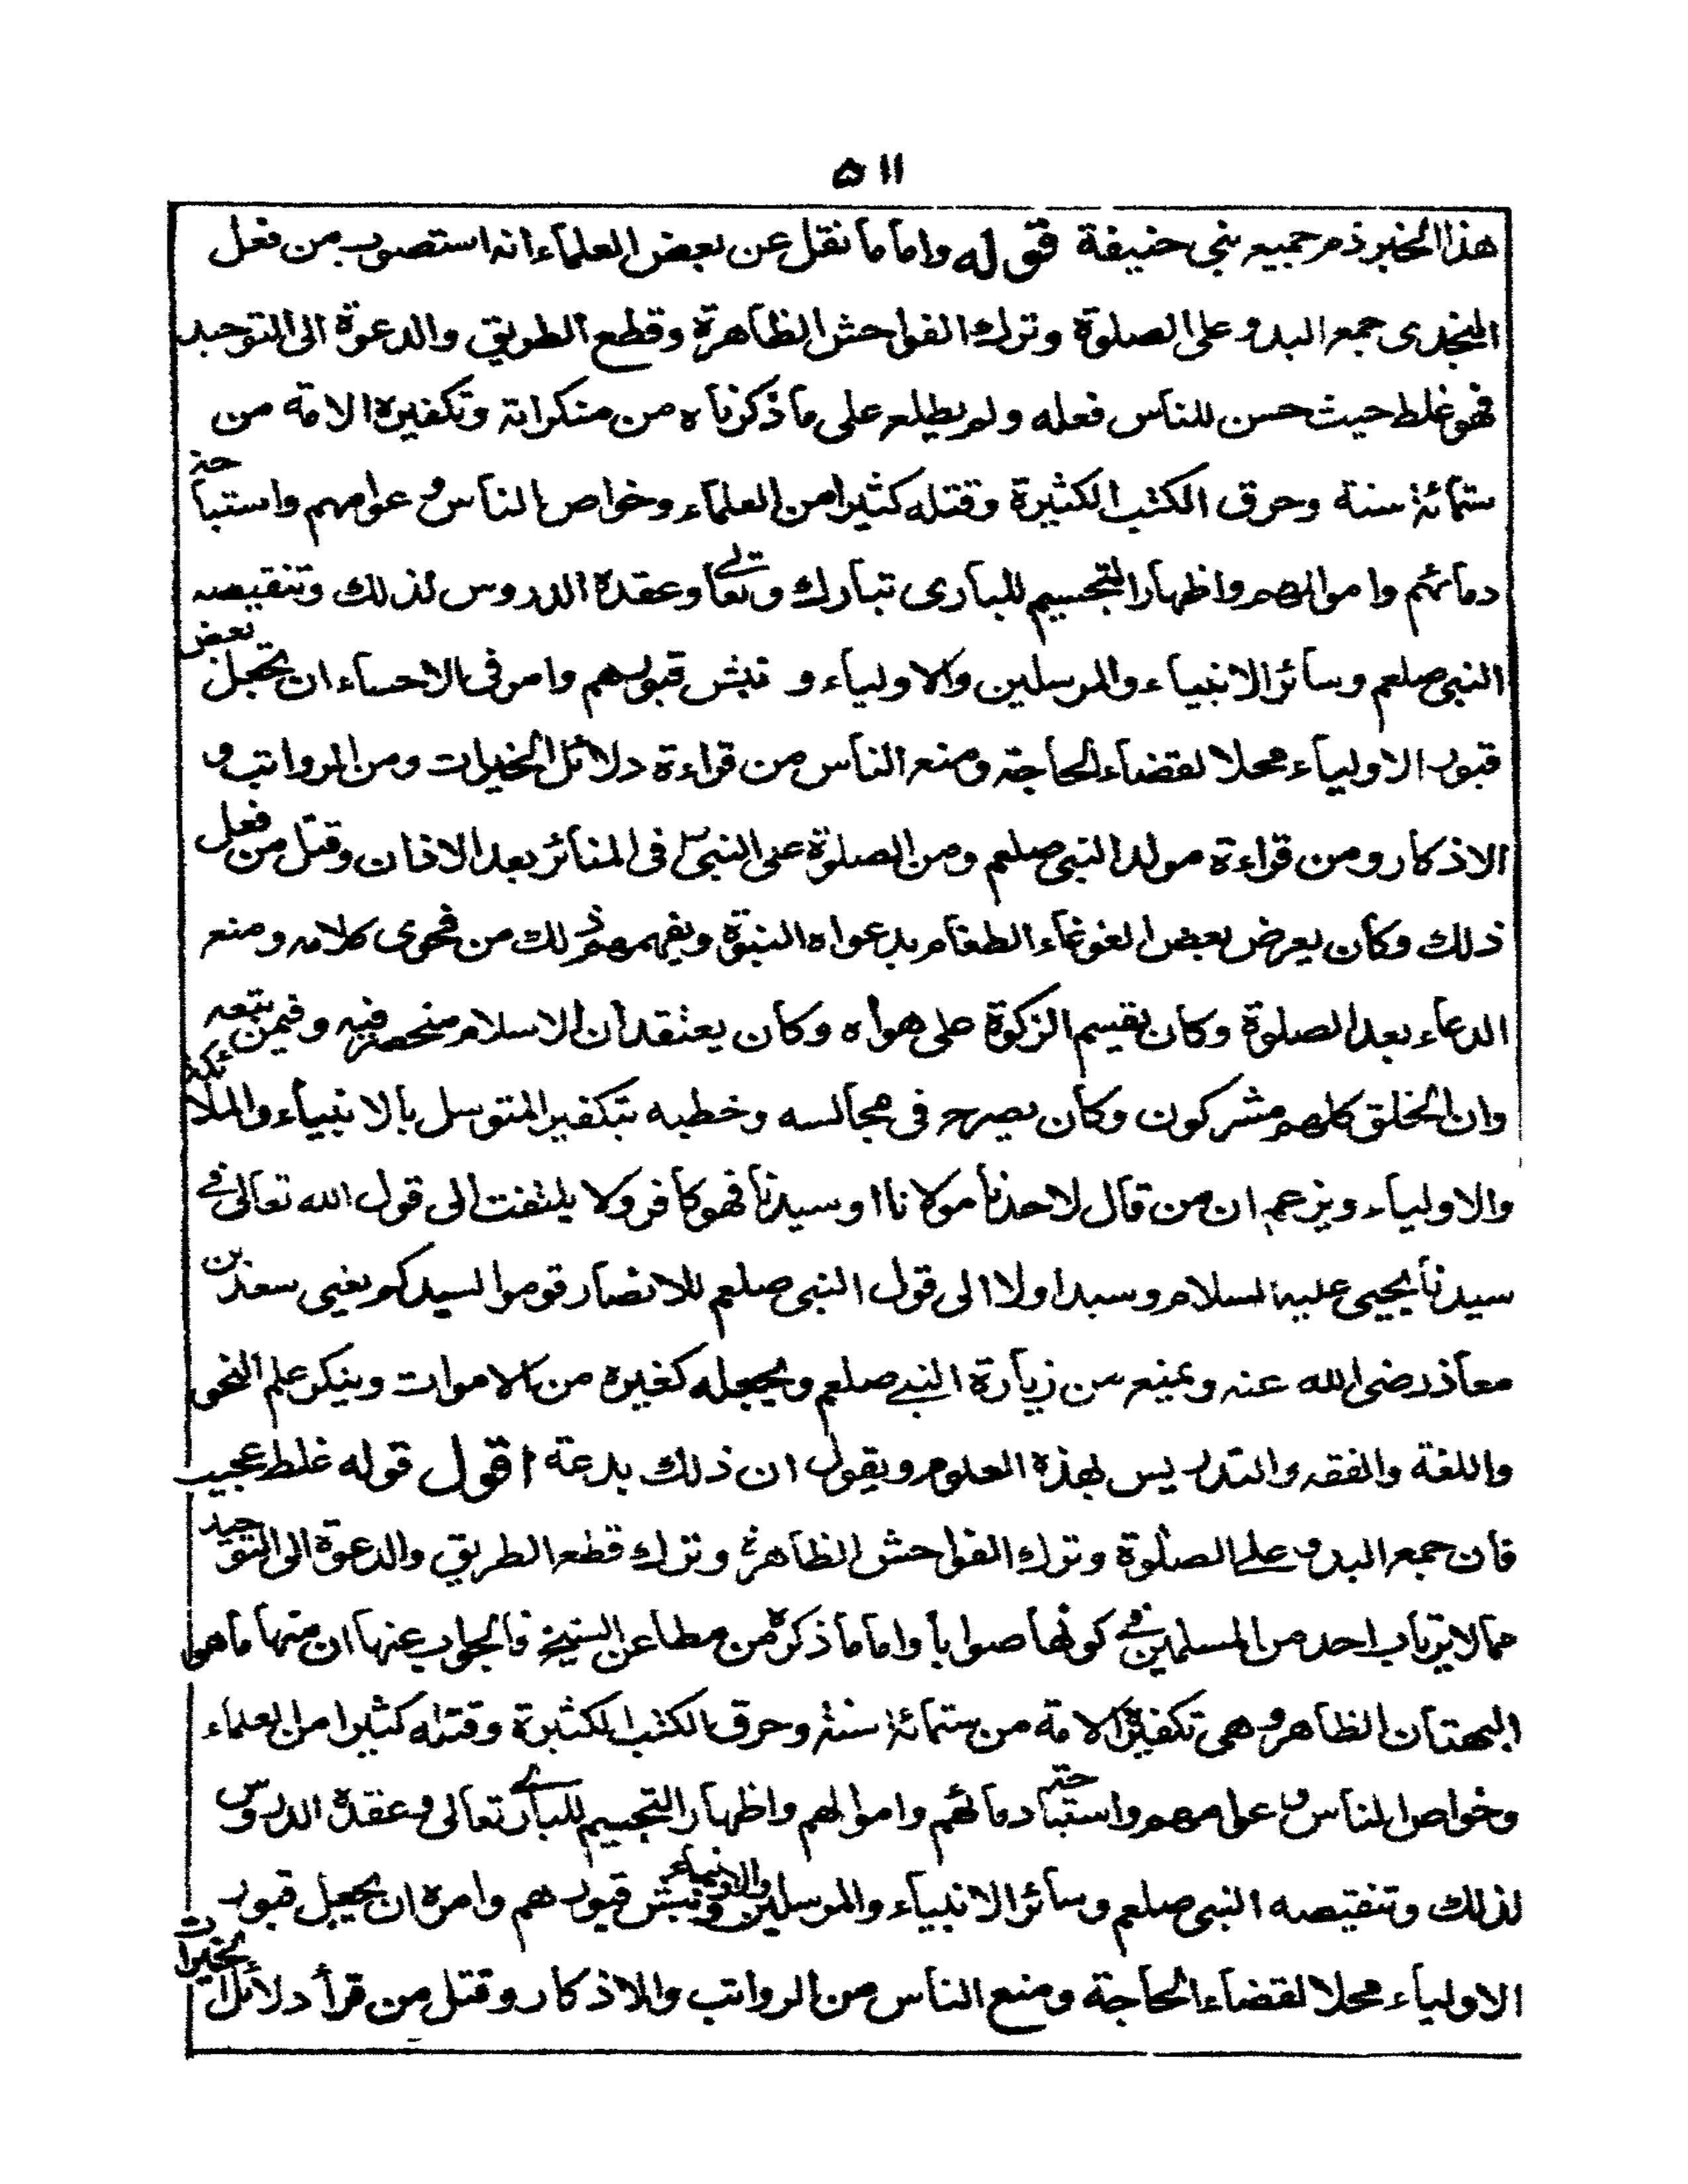 ٥١١
هذا الخبر ذم جميع بنى حنيفة قوله واما ما نقل عن بعض العلماء انه استصوب من فعل
النجدى جمع البدو على الصلوة وترك الفواحش الظاهرة وقطع الطريق والدعوة الى التوحيد
فهو غلط حيث حسن للناس فعله ولم يطلع على ما ذكرناه من منكراته وتكفيره الامة من
ستمائة سنة وحرق الكتب الكثيرة وقتله كثيرا من العلماء وخواص الناس وعوامهم واستباحة
دمائهم واموالهم واظهار التجسيم للبارى تبارك وتعالے وعقدة الدروس لذلك وتنقيصه
النبى صلعم وسائر الانبياء والمرسلين والاولياء و نبش قبورهم وامر فى الاحساء ان تجعل بعض
قبور الاولياء محلا لقضاء الحاجة ومنع الناس من قراءة دلائل الخيرات ومن الرواتب و
الاذكار ومن قراءة مولد النبى صلعم ومن الصلوة على النبىؐ فى المنائر بعد الاذان وقتل من فعل
ذلك وكان يعرض لبعض الغوغاء الطغام بدعواه النبوة ويفهمهم ذلك من فحوى كلامه ومنع
الدعاء بعد الصلوة وكان يقسيم الزكوة على هواه وكان يعتقد ان الاسلام منحصر فيه وفيمن تبعه
وان الخلق كلهم مشركون وكان يصرح فى مجالسه وخطبه بتكفير المتوسل بالانبياء والملائكة
والاولياء ويزعم ان من قال لاحدنا مولانا او سيدنا فهو كافر ولا يلتفت الى قول الله تعالى فے
سيدنا يحيى عليه السلام وسيدا ولا الى قول النبى صلعم للانصار قوموا لسيدكم يعنى سعد بن
معاذ رضى الله عنه ويمنع من زيارة النبے صلعم ويجعله كغيره من الاموات وينكر علم النحو
واللغة والفقه والتدريس لهذه العلوم ويقول ان ذلك بدعة اقول قوله غلط عجيب
فان جمع البدو علے الصلوة وترك الفواحش الظاهرة وترك قطع الطريق والدعوة الى التوحيد
مما لا يرتاب احد من المسلمين فے كونها صوابا واما ما ذكره من مطاعن الشيخ فالجواب عنها ان منها ما هو
البهتان الظاهر وهى تكفيره الامة من ستمائة سنة وحرق الكتب الكثيرة وقتله كثيرا من العلماء
وخواص الناس وعوامهم واستباحة دمائهم واموالهم واظهار التجسيم للبارے تعالى وعقدة الدروس
لذلك وتنقيصه النبى صلعم وسائر الانبياء والمرسلين والاولياء ونبش قبورهم وامره ان يجعل قبور
الاولياء محلا لقضاء الحاجة ومنع الناس من الرواتب والاذكار وقتل من قرأ دلائل الخيرات